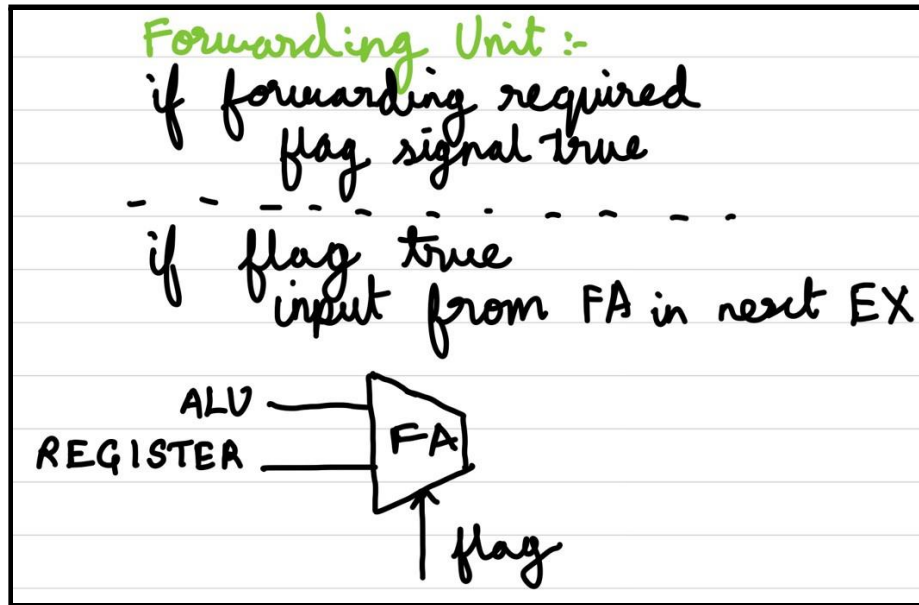 Forwarding Unit :-
if forwarding required
flag signal true
if flag true
input from FA in next EX
ALU
REGISTER
FA
flag